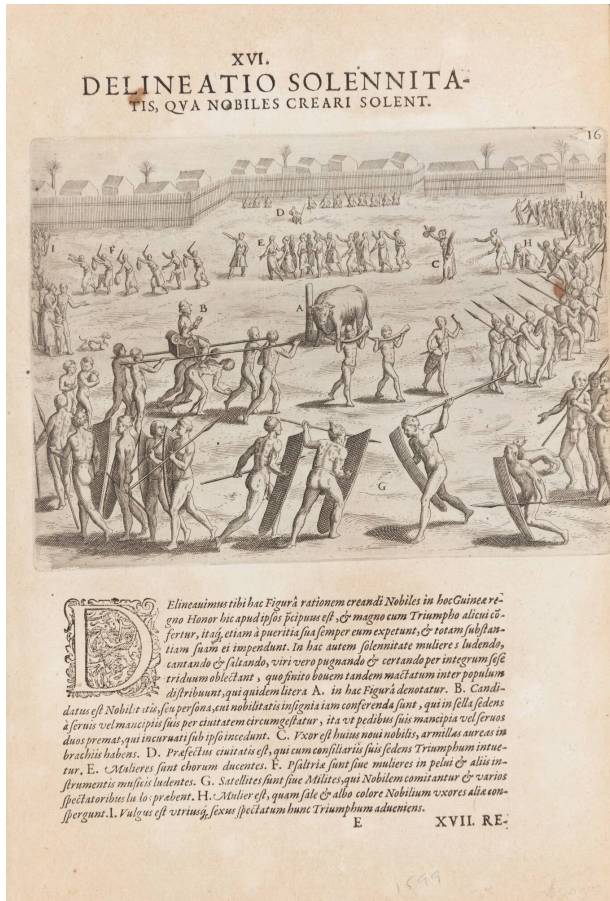 XVI.
DELINEATIO SOLENNITA-
TIS, QVA NOBILES CREARI SOLENT.
16
D
I
I
F
E
C
H
B
A
G
DElineauimus tibi hac Figurâ rationem creandi Nobiles in hoc Guineæ re-
gno Honor hic apud ipsos p̄cipuus est, & magno cum Triumpho alicui cō-
fertur, itaq; etiam à pueritia sua semper eum expetunt, & totam substan-
tiam suam ei impendunt. In hac autem solennitate mulieres ludendo,
cantando & saltando, viri vero pugnando & certando per integrum sese
triduum oblectant, quo finito bouem tandem mactatum inter populum
distribuunt, qui quidem litera A. in hac Figurâ denotatur. B. Candi-
datus est Nobilitatis, seu persona, cui nobilitatis insignia iam conferenda sunt, qui in sella sedens
à seruis vel mancipiis suis per ciuitatem circumgestatur, ita vt pedibus suis mancipia vel seruos
duos premat, qui incuruati sub ipso incedunt. C. Vxor est huius noui nobilis, armillas aureas in
brachiis habens. D. Præfectus ciuitatis est, qui cum consiliariis suis sedens Triumphum intue-
tur. E. Mulieres sunt chorum ducentes. F. Psaltriæ sunt siue mulieres in pelui & aliis in-
strumentis musicis ludentes. G. Satellites sunt siue Milites, qui Nobilem comitantur & varios
spectatoribus lu præbent. H. Mulier est, quam sale & albo colore Nobilium vxores aliæ con-
spergunt. I. Vulgus est vtriusq; sexus spectatum hunc Triumphum adueniens.
E XVII. RE-
1599